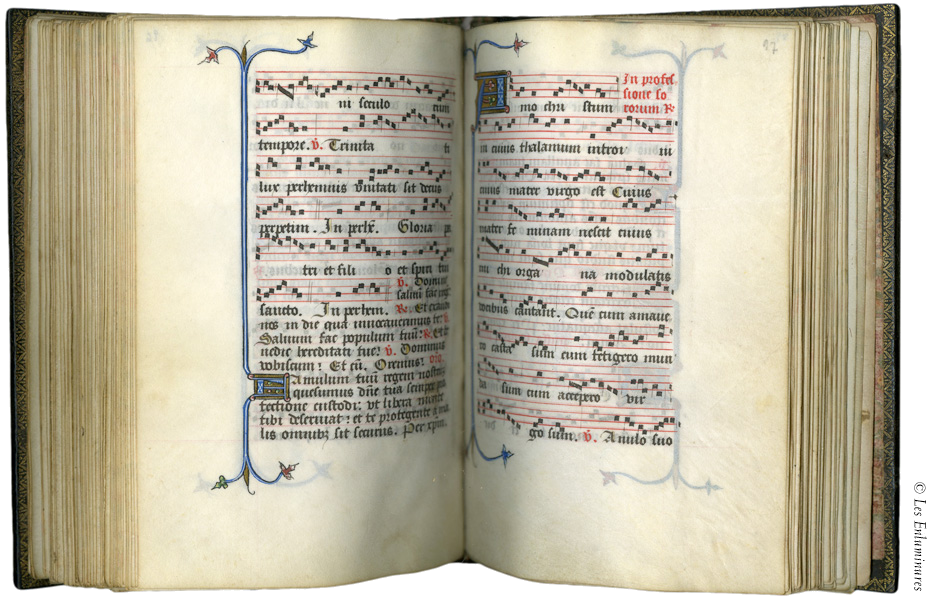 ni seculo rum
tempore. v. Trinita ti
lux perhennis unitati sit decus
perpetim. In perhe. Gloria pa
tri et fili o et spiri tui
v. Domine
salvum fac regem
sancto. In perhem. R. Et exaudi
nos in die qua invocaverimus te. v.
Salvum fac populum tuum: R. Et be
nedic hereditati tue: v. Dominus
vobiscum: Et cu. Oremus: oro
Famulum tuum regem nostrum
quesumus dne tua semper pro
tectione custodi: ut libera mente
tibi deserviat: et te protegente a ma
lis omnibz sit securus. Per xpm.
97
In profes
sione so
rorum R.
A mo chri stum
in cuius thalamum introi vi
cuius mater virgo est Cuius
pater fe minam nescit cuius
mi chi orga na modulatis
vocibus cantant. Que cum amave
ro casta sum cum tetigero mun
da sum cum accepero vir
go sum. v. Anulo suo
© Les Enluminures